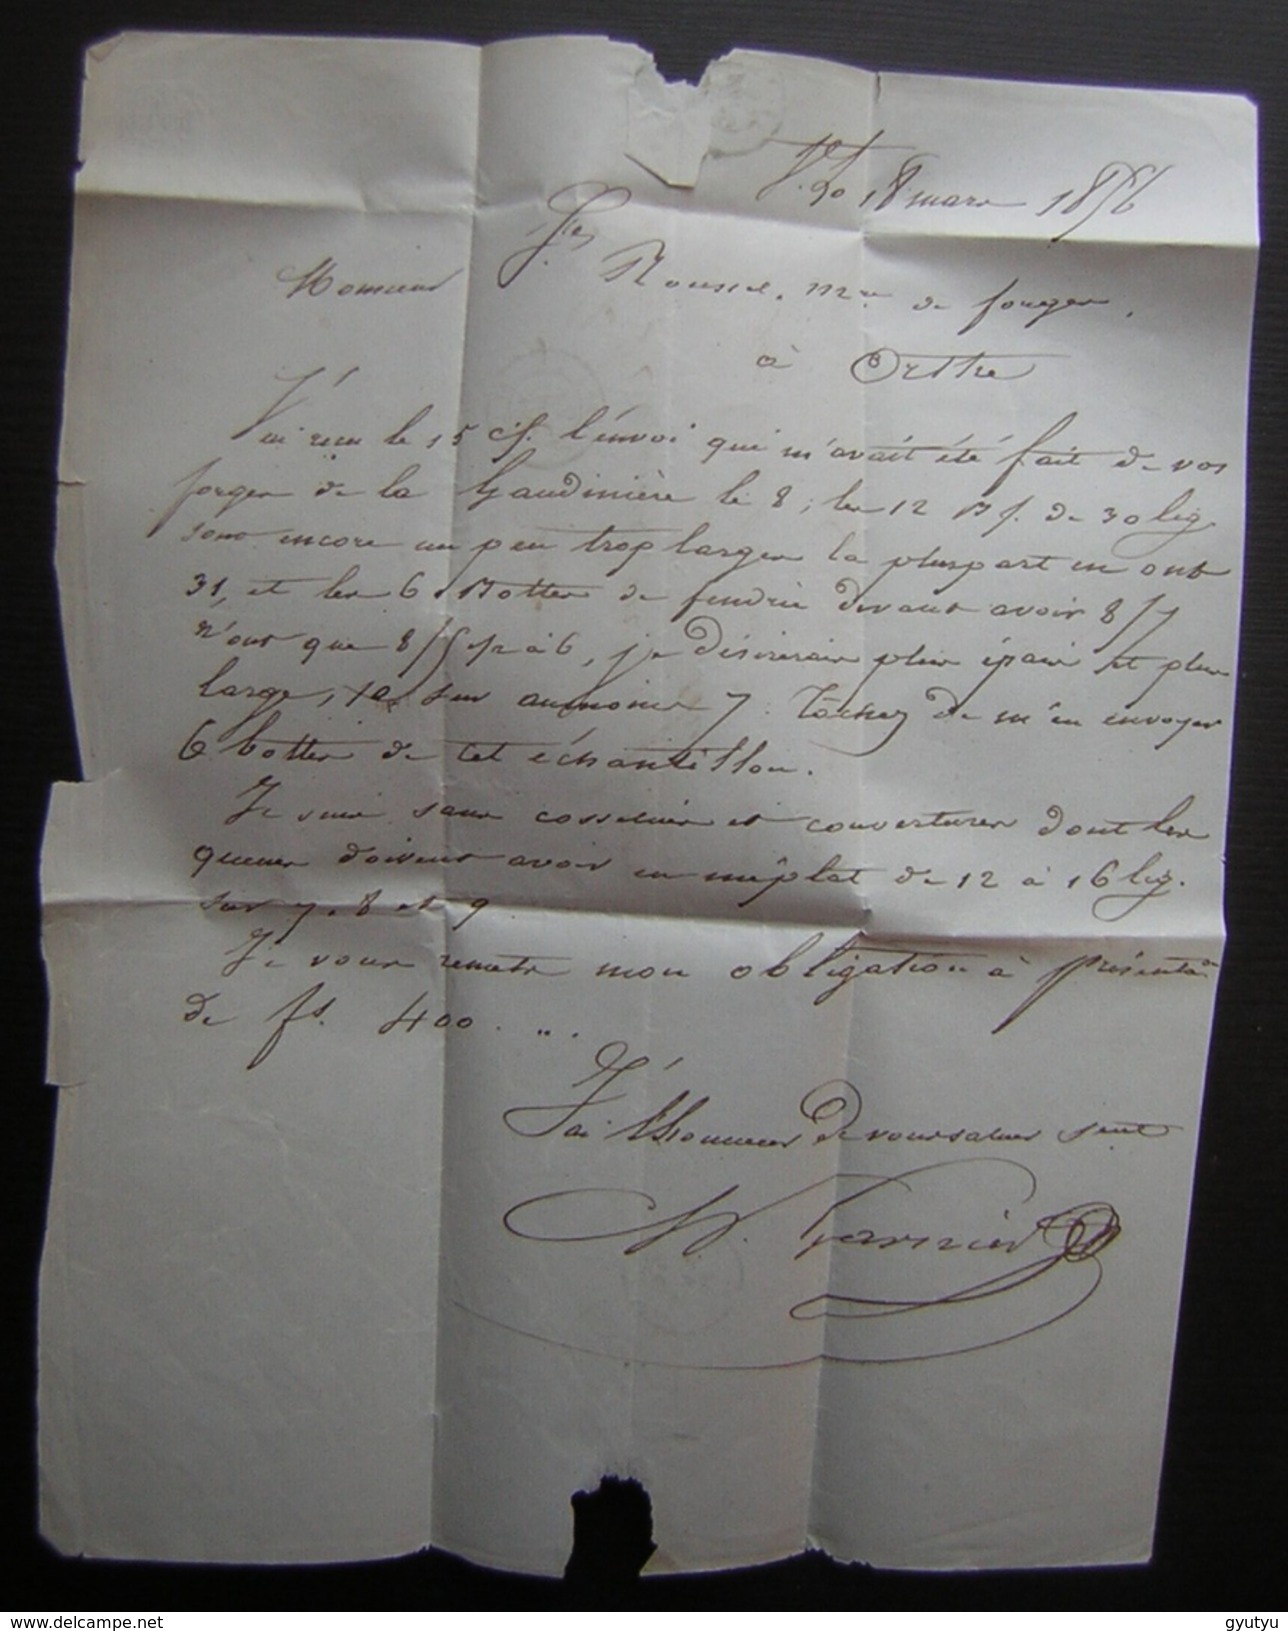 18 mars 1856
Monsieur
Roussel, Me de forges,
à Orthe
J'ai reçu le 15 ct. l'énvoi qui m'avait été fait de vos
forges de la Gaudinière le 8; les 12 Bs. de 30 lig.
sont encore un peu trop larges la pluspart en ont
31, et les 6 Bottes de fendrie devant avoir 8/7
n'ont que 8/5 1/2 à 6, je désirerais plus épais et plus
large, sur aumoins 7. Tâchez de m'en envoyer
6 bottes de cet échantillon.
Je suis sans cossettes et couvertures dont les
queues doivent avoir en méplat de 12 à 16 lig.
sur 7, 8 et 9
Je vous remets mon obligation à présentaon
de fs. 400. "".
J'ai l'honneur de vous saluer
Garnier
gyutyu
www.delcampe.net